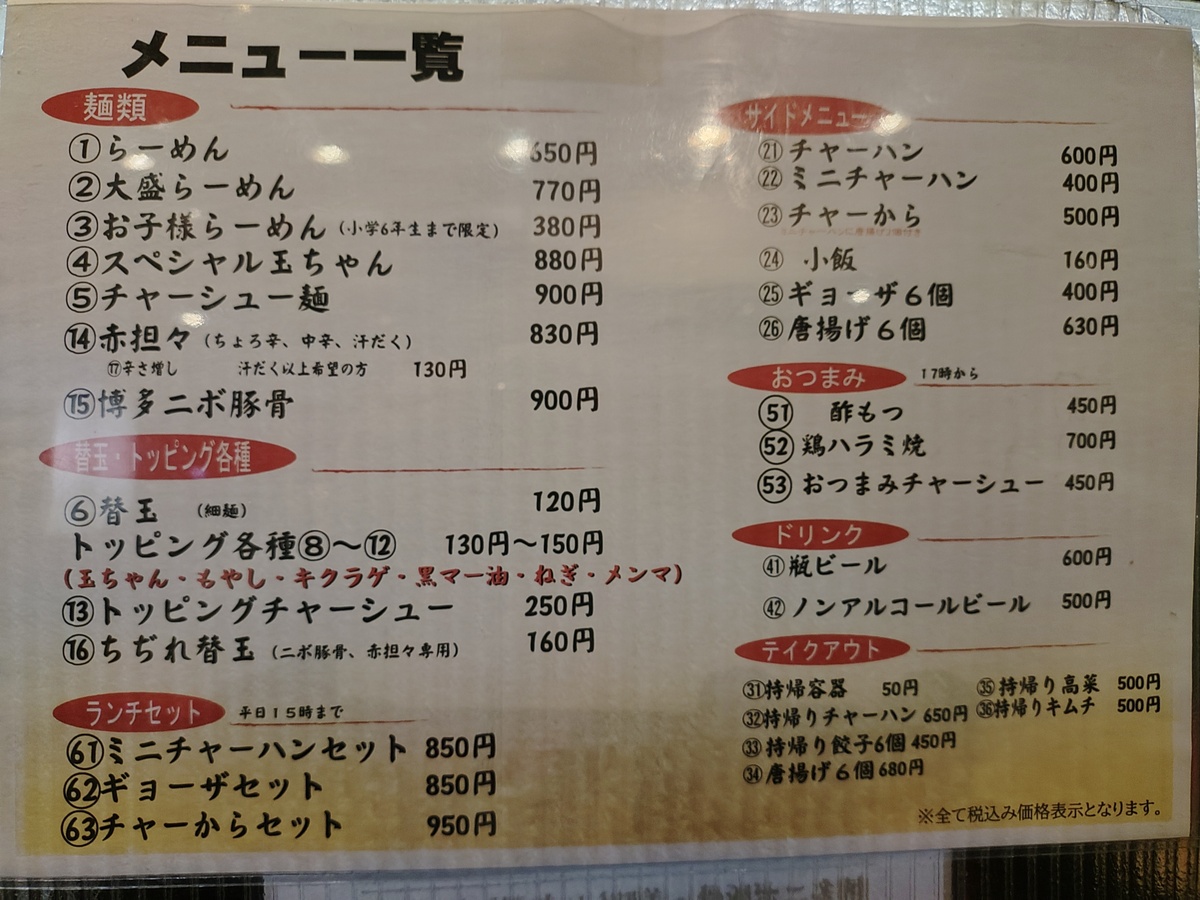 メニュー一覧
麺類
①らーめん 650円
②大盛らーめん 770円
③お子様らーめん(小学6年生まで限定) 380円
④スペシャル玉ちゃん 880円
⑤チャーシュー麺 900円
⑭赤担々(ちょろ辛、中辛、汗だく) 830円
⑰辛さ増し 汗だく以上希望の方 130円
⑮博多ニボ豚骨 900円
替玉・トッピング各種
⑥替玉 (細麺) 120円
トッピング各種⑧～⑫ 130円～150円
(玉ちゃん・もやし・キクラゲ・黒マー油・ねぎ・メンマ)
⑬トッピングチャーシュー 250円
⑯ちぢれ替玉(ニボ豚骨、赤担々専用) 160円
ランチセット 平日15時まで
61ミニチャーハンセット 850円
62ギョーザセット 850円
63チャーからセット 950円
サイドメニュー
㉑チャーハン 600円
㉒ミニチャーハン 400円
㉓チャーから 500円
ミニチャーハンに唐揚げ2個付き
㉔ 小飯 160円
㉕ギョーザ6個 400円
㉖唐揚げ6個 630円
おつまみ 17時から
51 酢もつ 450円
52 鶏ハラミ焼 700円
53 おつまみチャーシュー 450円
ドリンク
㊶瓶ビール 600円
㊷ノンアルコールビール 500円
テイクアウト
㉛持帰容器 50円
㉜持帰りチャーハン 650円
㉝持帰り餃子6個 450円
㉞唐揚げ6個 680円
㉟持帰り高菜 500円
㊱持帰りキムチ 500円
※全て税込み価格表示となります。